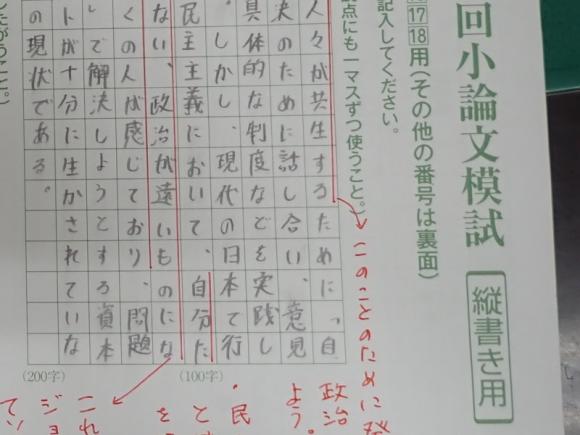 回小論文模試 縦書き用
17 18 用(その他の番号は裏面)
記入してください。
点にも一マスずつ使うこと。)
このことのために
政治
よう。
・民
と
を
これ
ジ
てい
人々が共生するために、自
決のために話し合い、意見
具体的な制度などを実践し
しかし、現代の日本で行
民主主義において、自分た
(100字)
ない、政治が遠いものにな
くの人が感じており、問題
」で解決しようとする資本
トが十分に生かされていな
の現状である。
(200字)
たがうこと。)